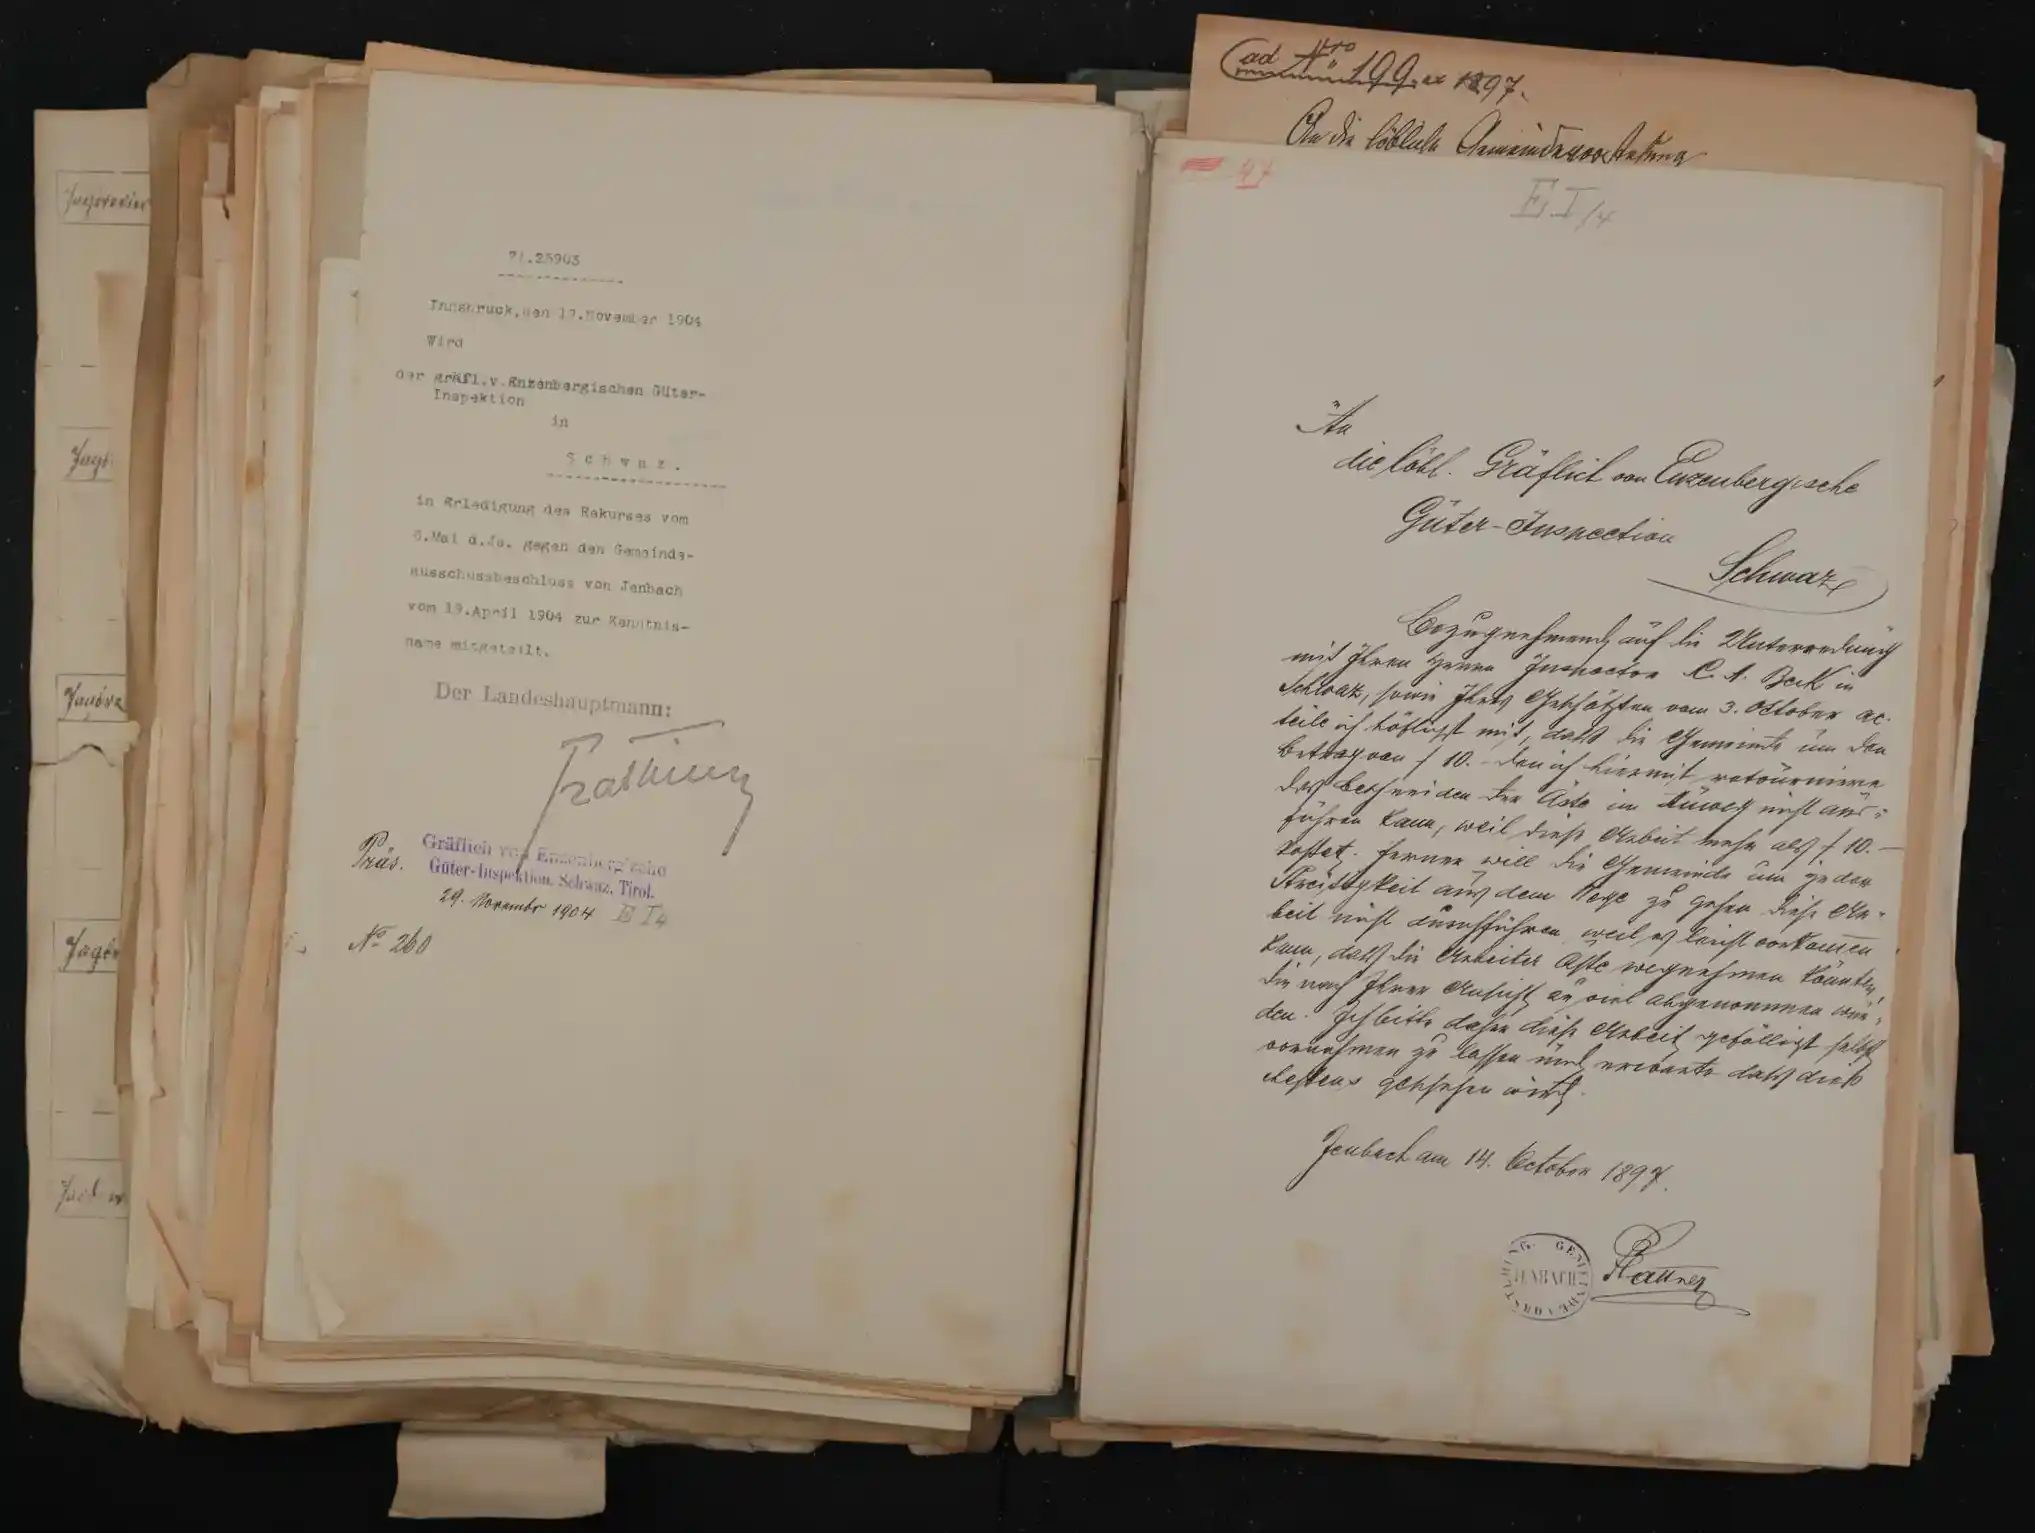 Zl.25903
Innsbruck, den 17.November 1904
Wird
der gräfl.v.Enzenbergischen Güter-
Inspektion
in
Schwaz.
in Erledigung des Rekurses vom
6.Mai d.Js. gegen den Gemeinde-
ausschussbeschluss von Jenbach
vom 19.April 1904 zur Kenntnis-
name mitgeteilt.
Der Landeshauptmann:
Präs.
Gräflich von Enzenberg'sche
Güter-Inspektion, Schwaz, Tirol.
29. November 1904 E I 4
No 260
ad Nro 199 ex 1897.
An die löbliche Gemeindevorstehung
47
E.I/4
An
die löbl. Gräflich von Enzenbergische
Güter-Inspection
Schwaz
Bezugnehmend auf die Unterredung
mit Ihren Herrn Inspector C. A. Beck in
Schwaz, sowie Ihres Geschätzten vom 3. October ac.
teile ich höflichst mit, dass die Gemeinde um den
Betrag von f 10.- den ich hiermit retourniere
das Beschneiden der Äste im nicht aus=
führen kann, weil diese Arbeit mehr als f 10.-
kostet. Ferner will die Gemeinde um jeder
Streitigkeit aus dem Wege zu gehen diese Ar=
beit nicht durchführen, weil es leicht vorkommen
kann, dass die Arbeiter Äste wegnehmen könnten,
die nach Ihrer Ansicht zu viel abgenommen wür=
den. Ich bitte daher diese Arbeit gefälligst selbst
vornehmen zu lassen und erwarte dass dies
bestens geschehen wird.
Jenbach am 14. October 1897.
GEMEINDEVORSTEHUNG JENBACH
Plattner